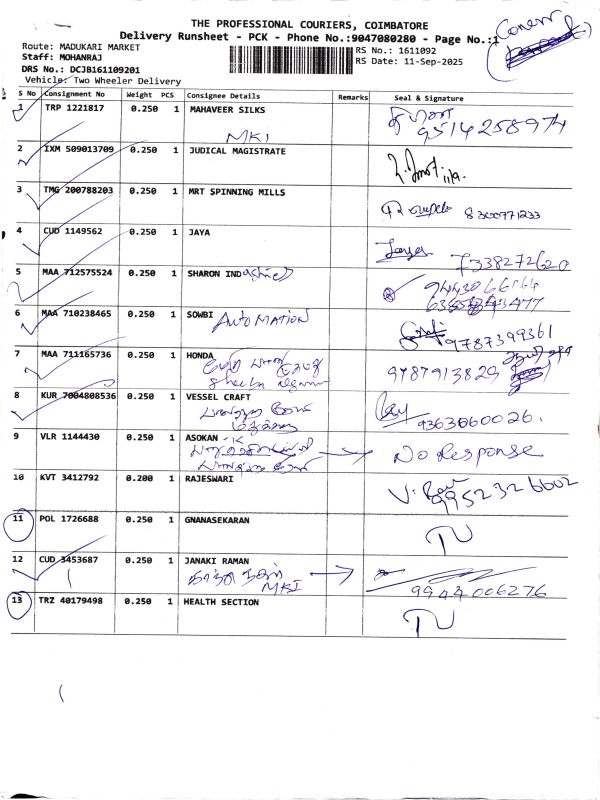 THE PROFESSIONAL COURIERS, COIMBATORE
Delivery Runsheet - PCK - Phone No.:9047080280 - Page No.:1
Route: MADUKARI MARKET
Staff: MOHANRAJ
DRS No.: DCJB161109201
Vehicle: Two Wheeler Delivery
RS No.: 1611092
RS Date: 11-Sep-2025
S No Consignment No Weight PCS Consignee Details Remarks Seal & Signature
1 TRP 1221817 0.250 1 MAHAVEER SILKS
MKI 9514258974
2 IXM 509013709 0.250 1 JUDICAL MAGISTRATE
11/9.
3 TMG 200788203 0.250 1 MRT SPINNING MILLS
8300771233
4 CUD 1149562 0.250 1 JAYA
Jaya 7338272620
5 MAA 712575524 0.250 1 SHARON IND
9443066164
6 MAA 710238465 0.250 1 SOWBI AUTOMATION
9787399361
7 MAA 711165736 0.250 1 HONDA
9787913829
8 KUR 7004808536 0.250 1 VESSEL CRAFT
9363060026.
9 VLR 1144430 0.250 1 ASOKAN - K
No Response
10 KVT 3412792 0.200 1 RAJESWARI
9952326602
11 POL 1726688 0.250 1 GNANASEKARAN
12 CUD 3453687 0.250 1 JANAKI RAMAN
காந்தி நகர்
MKI 9944006276
13 TRZ 40179498 0.250 1 HEALTH SECTION